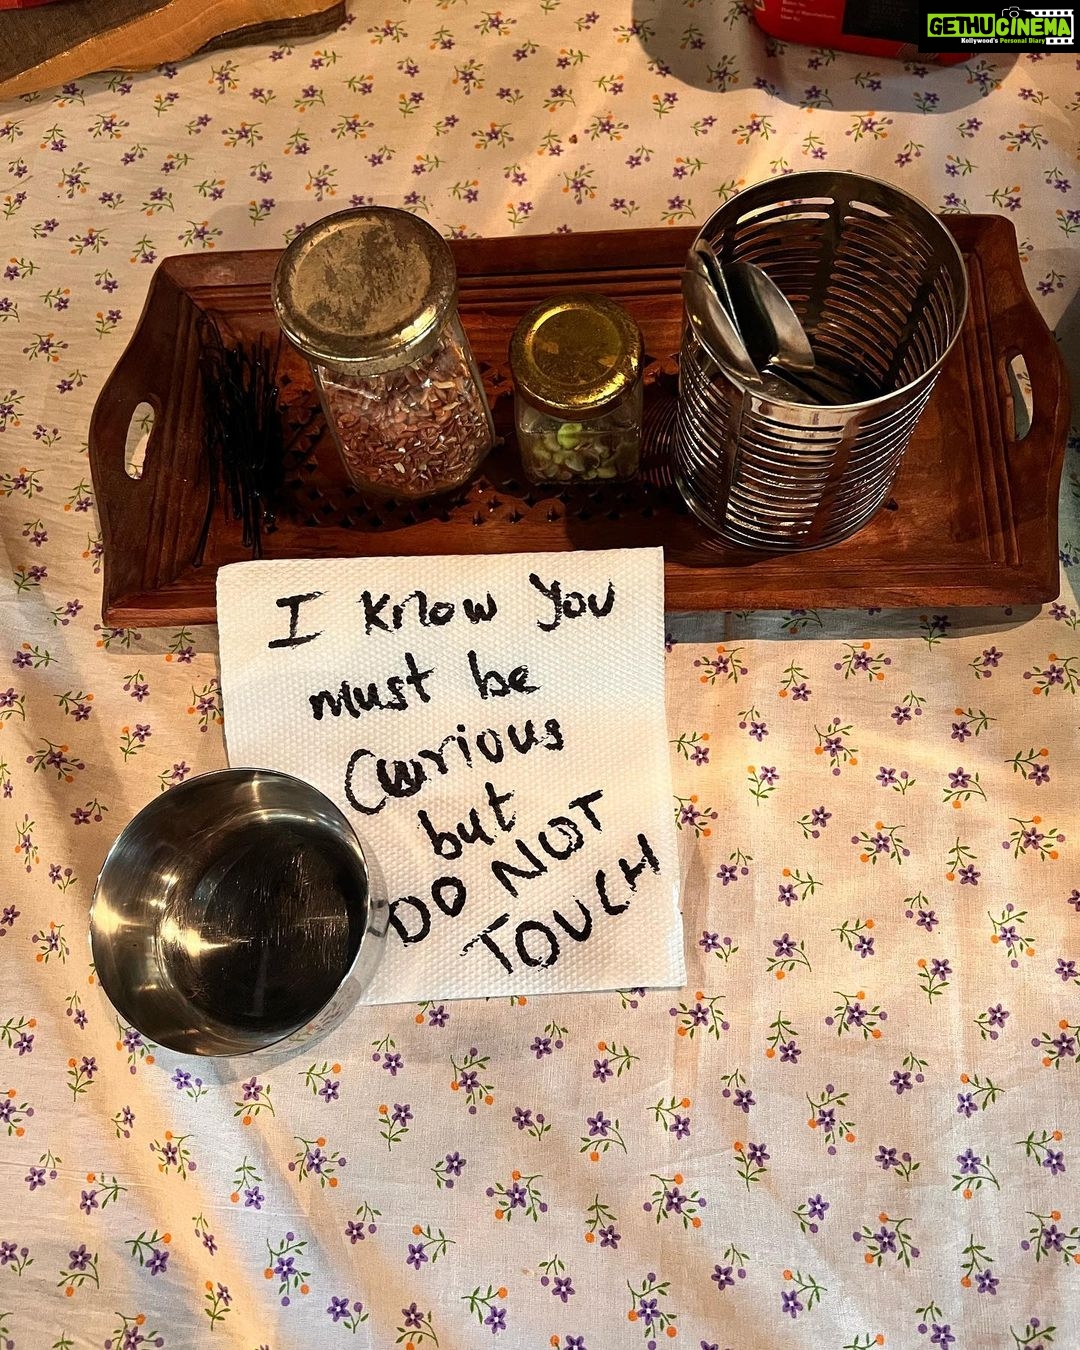 GETHU CINEMA
Kollywood's Personal Diary
I know you
must be
Curious
but
DO NOT
TOUCH